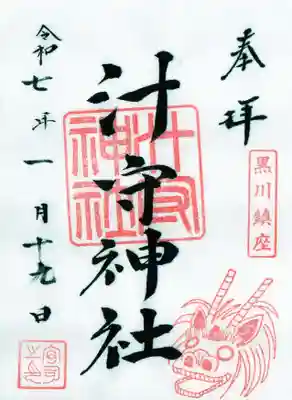 奉拝
黒川鎮座
汁守神社
汁守神社
令和七年一月十九日